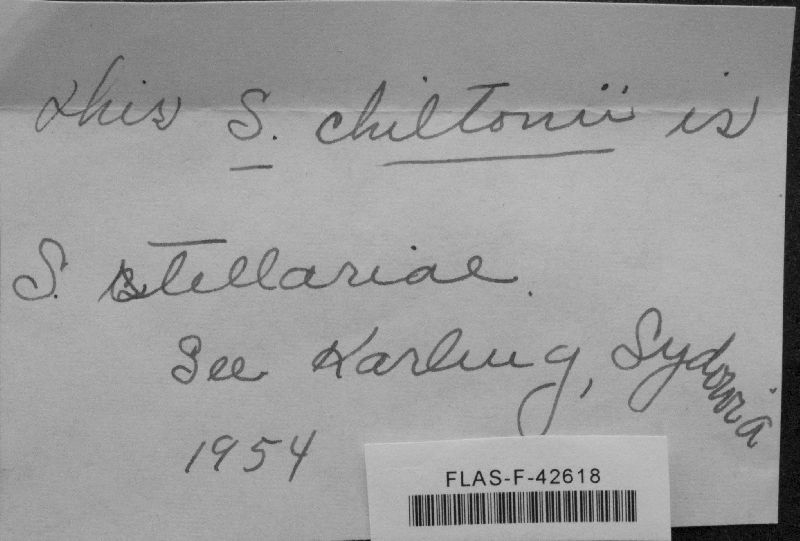 this S. chiltonii is
S. stellariae.
See Karling, Sydowia
1954
FLAS-F-42618